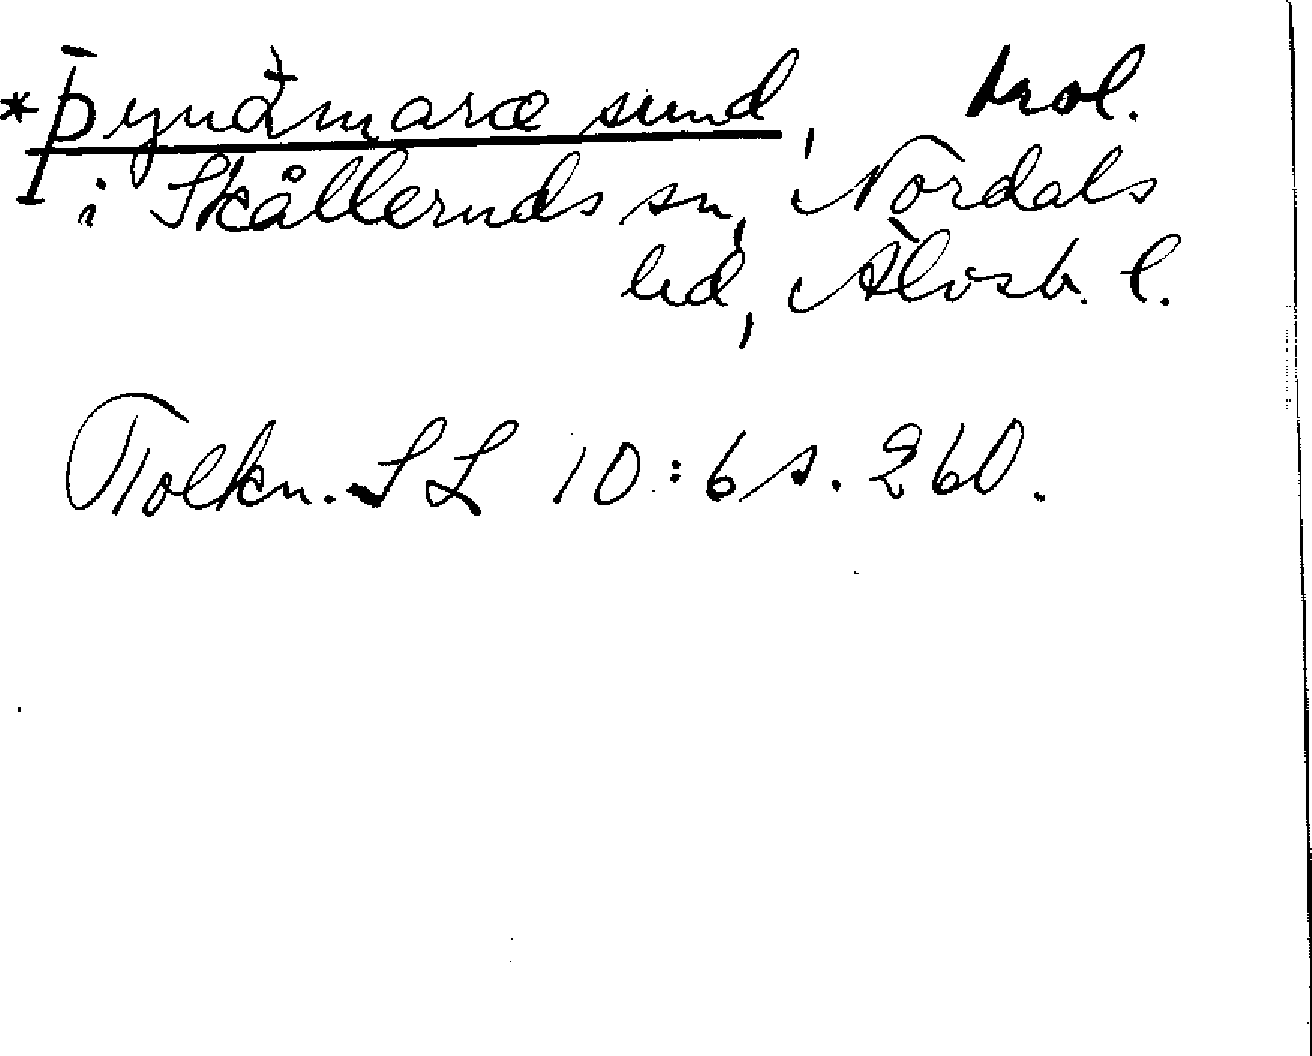 *þynðmaræ sund, trol.
i Skålleruds sn, Nordals
hd, Älvsb. l.
Tolkn. SL 10:6 s. 260.